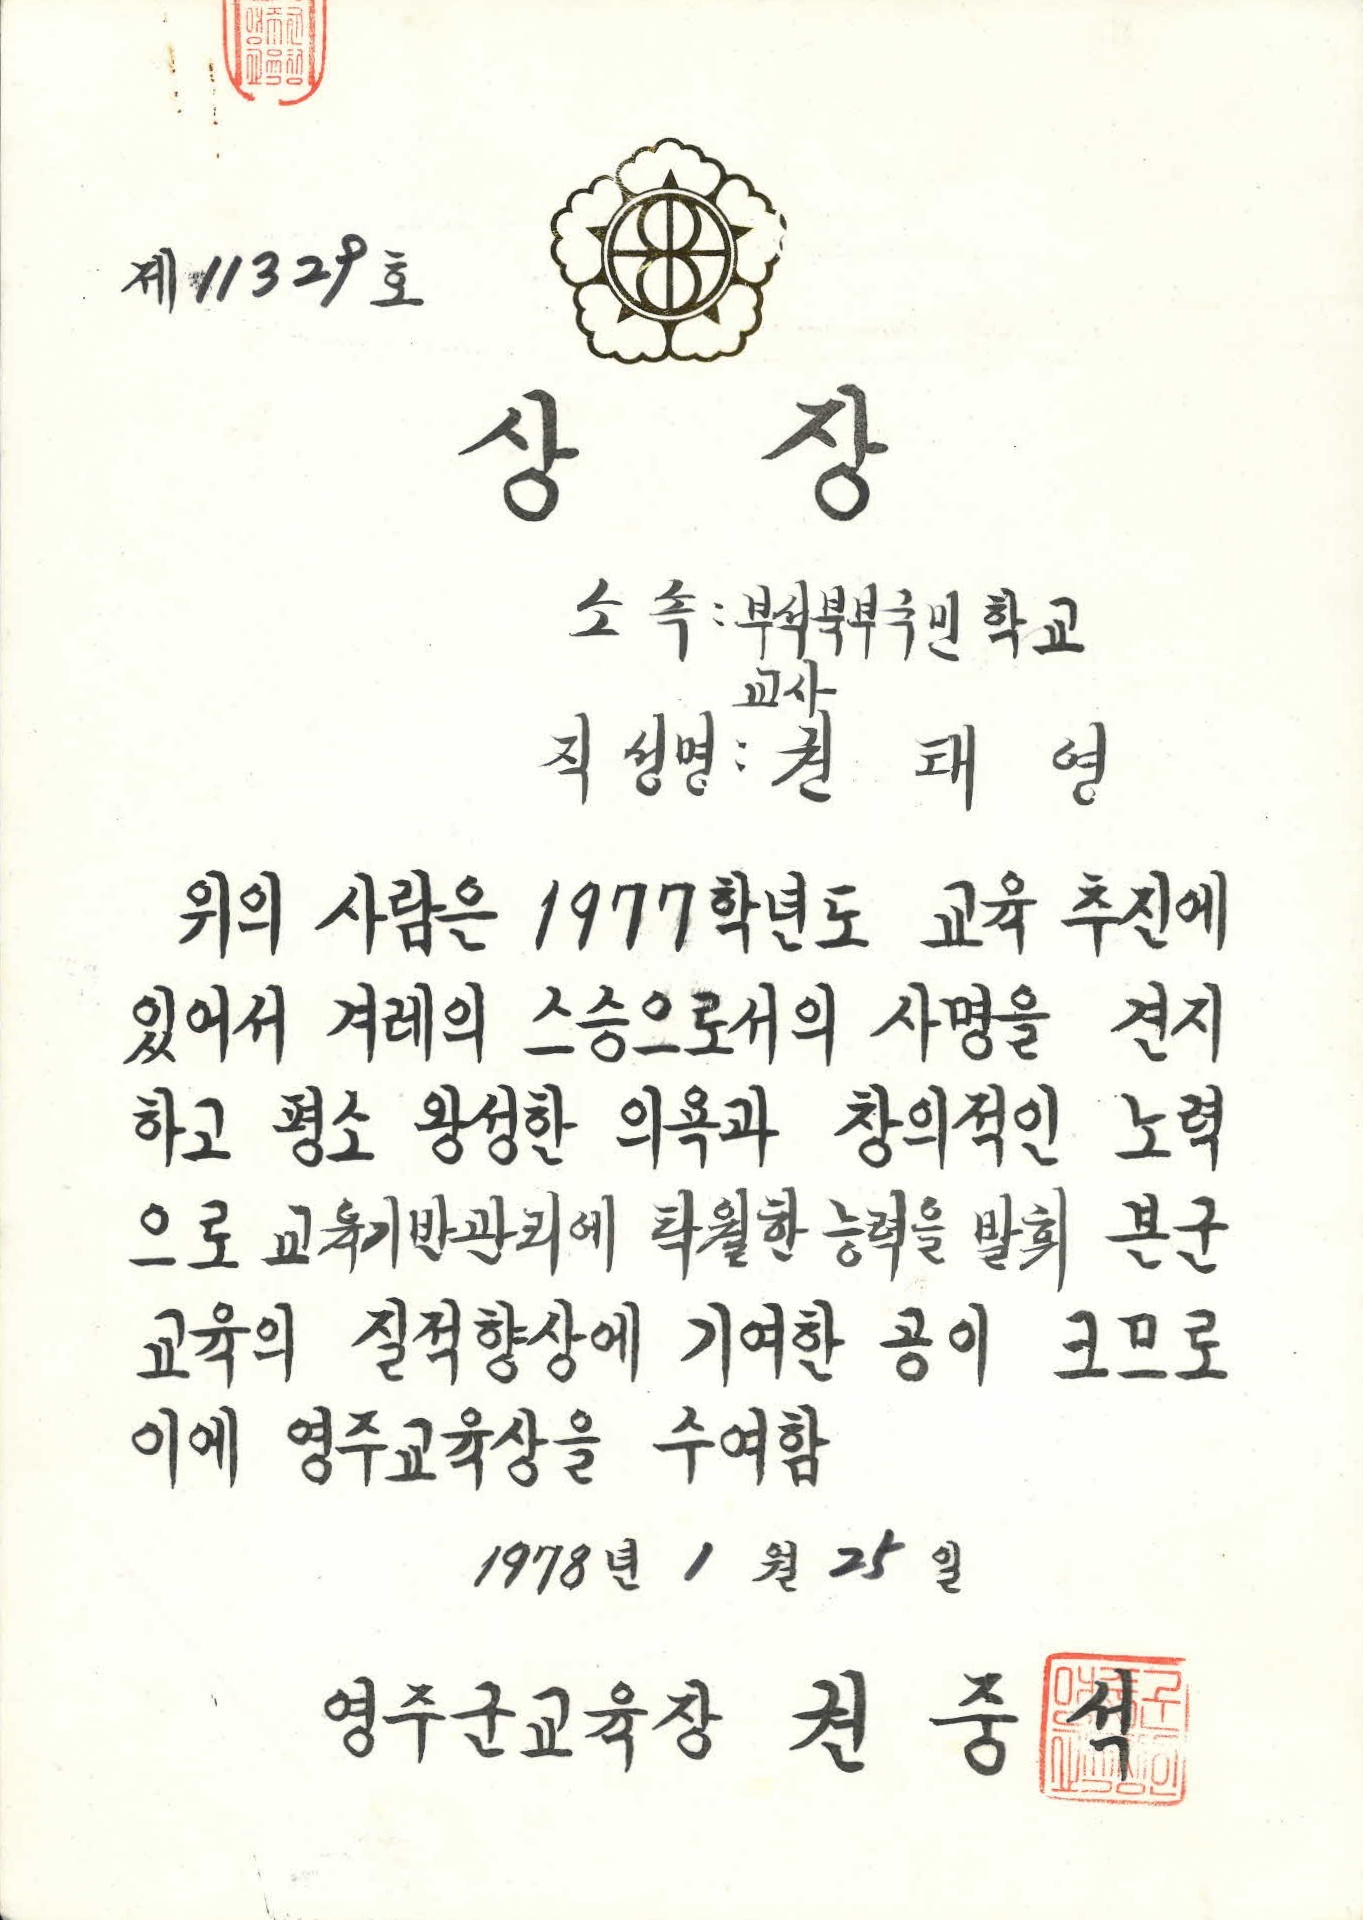 제 11329 호
상 장
소 속 : 부석북부국민학교
교사
직 성명 : 권 태 영
위의 사람은 1977학년도 교육 추진에
있어서 겨레의 스승으로서의 사명을 견지
하고 평소 왕성한 의욕과 창의적인 노력
으로 교육기반관리에 탁월한 능력을 발휘 본군
교육의 질적향상에 기여한 공이 크므로
이에 영주교육상을 수여함
1978년 1 월 25 일
영주군교육장 권 중 석